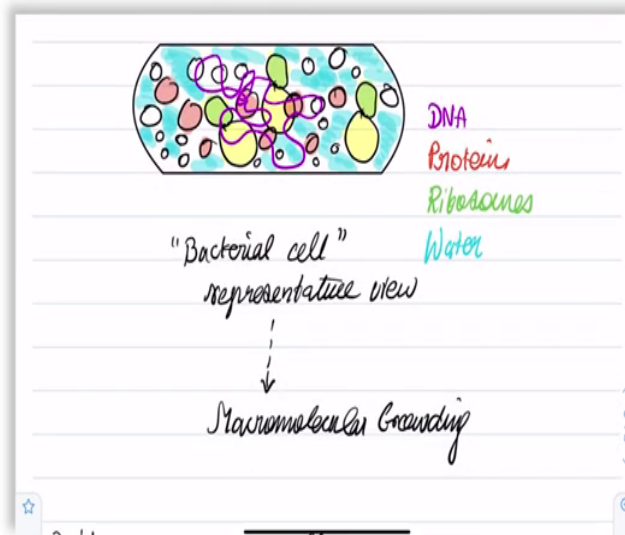 DNA
Proteins
Ribosomes
Water
"Bacterial cell"
representative view
Macromolecular Crowding